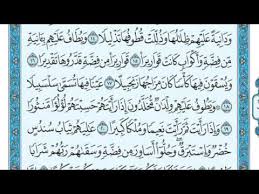 وَدَانِيَةً عَلَيْهِمْ ظِلَالُهَا وَذُلِّلَتْ قُطُوفُهَا تَذْلِيلًا ١٤ وَيُطَافُ عَلَيْهِم بِـَٔانِيَةٍ
مِّن فِضَّةٍ وَأَكْوَابٍ كَانَتْ قَوَارِيرَا۠ ١٥ قَوَارِيرَا۠ مِن فِضَّةٍ قَدَّرُوهَا تَقْدِيرًا ١٦
وَيُسْقَوْنَ فِيهَا كَأْسًا كَانَ مِزَاجُهَا زَنجَبِيلًا ١٧ عَيْنًا فِيهَا تُسَمَّىٰ سَلْسَبِيلًا
١٨ وَيَطُوفُ عَلَيْهِمْ وِلْدَٰنٌ مُّخَلَّدُونَ إِذَا رَأَيْتَهُمْ حَسِبْتَهُمْ لُؤْلُؤًا مَّنثُورًا
١٩ وَإِذَا رَأَيْتَ ثَمَّ رَأَيْتَ نَعِيمًا وَمُلْكًا كَبِيرًا ٢٠ عَٰلِيَهُمْ ثِيَابُ سُندُسٍ
خُضْرٌ وَإِسْتَبْرَقٌ وَحُلُّوٓا۟ أَسَاوِرَ مِن فِضَّةٍ وَسَقَىٰهُمْ رَبُّهُمْ شَرَابًا